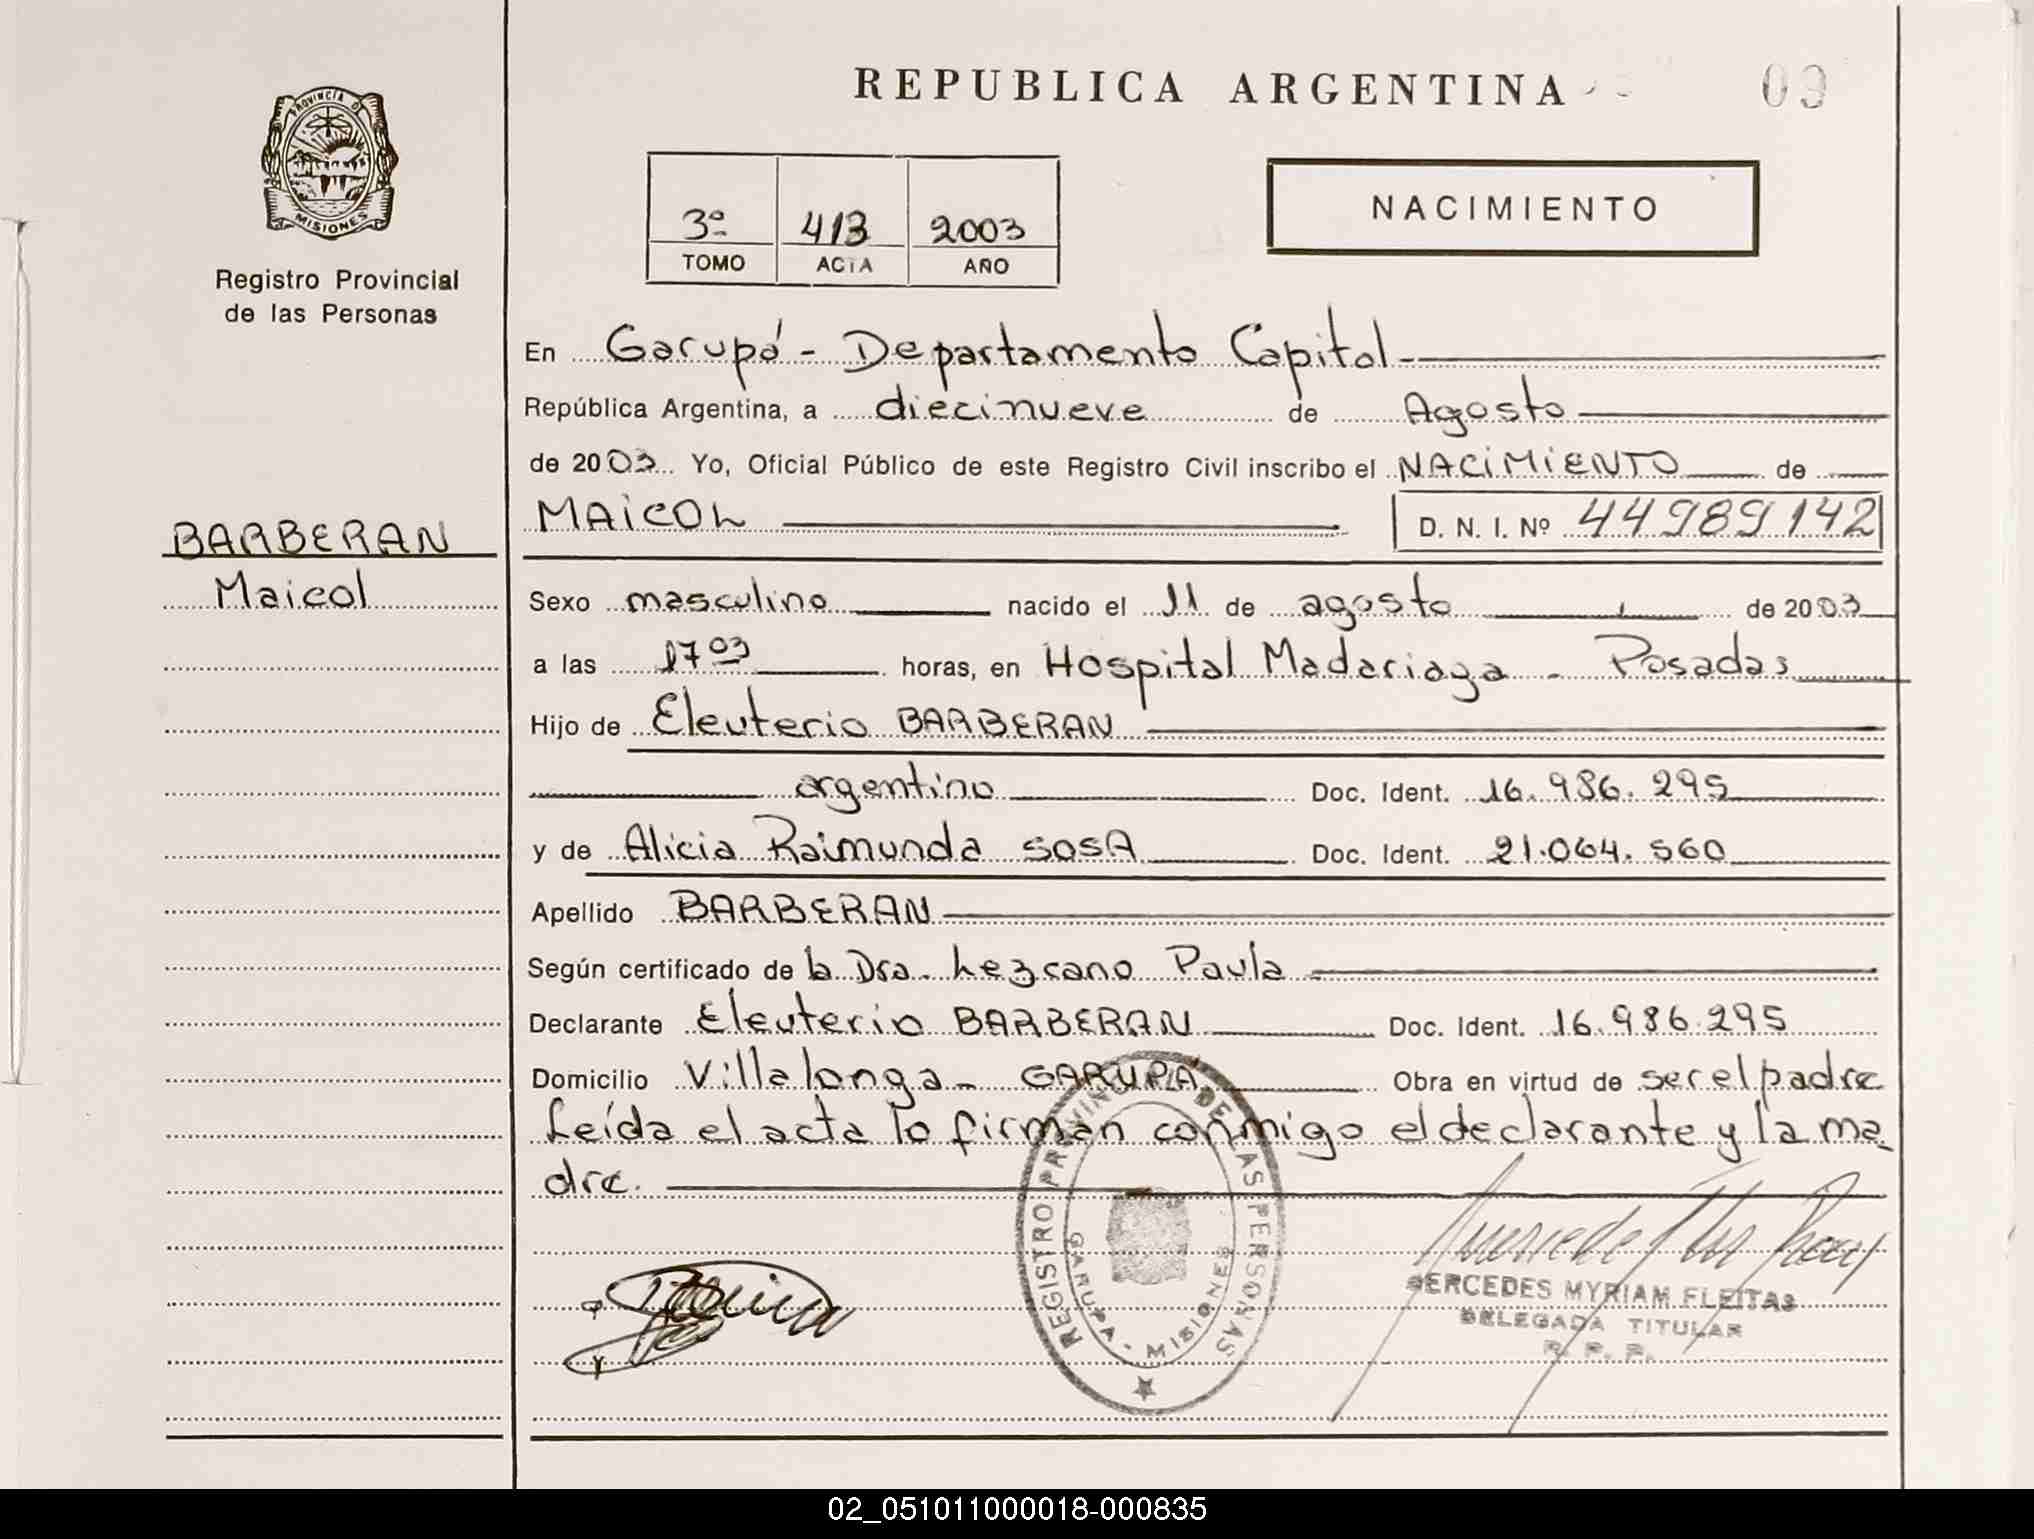 REPUBLICA ARGENTINA
09
PROVINCIA DE
MISIONES
Registro Provincial
de las Personas
3º 413 2003
TOMO ACTA AÑO
NACIMIENTO
En Garupá - Departamento Capital
República Argentina, a diecinueve de Agosto
de 2003 Yo, Oficial Público de este Registro Civil inscribo el NACIMIENTO de
MAICOL D. N. I. Nº 44989142
BARBERAN
Maicol
Sexo masculino nacido el 11 de agosto de 2003
a las 17 03 horas, en Hospital Madariaga - Posadas
Hijo de Eleuterio BARBERAN
argentino Doc. Ident. 16.986.295
y de Alicia Raimunda SOSA Doc. Ident. 21.064.560
Apellido BARBERAN
Según certificado de la Dra. Lezcano Paula
Declarante Eleuterio BARBERAN Doc. Ident. 16.986.295
Domicilio Villalonga - GARUPÁ Obra en virtud de ser el padre
Leída el acta lo firman conmigo el declarante y la ma-
dre.
REGISTRO PROVINCIAL DE LAS PERSONAS
GARUPA - MISIONES
MERCEDES MYRIAM FLEITAS
DELEGADA TITULAR
R. P. P.
02_051011000018-000835